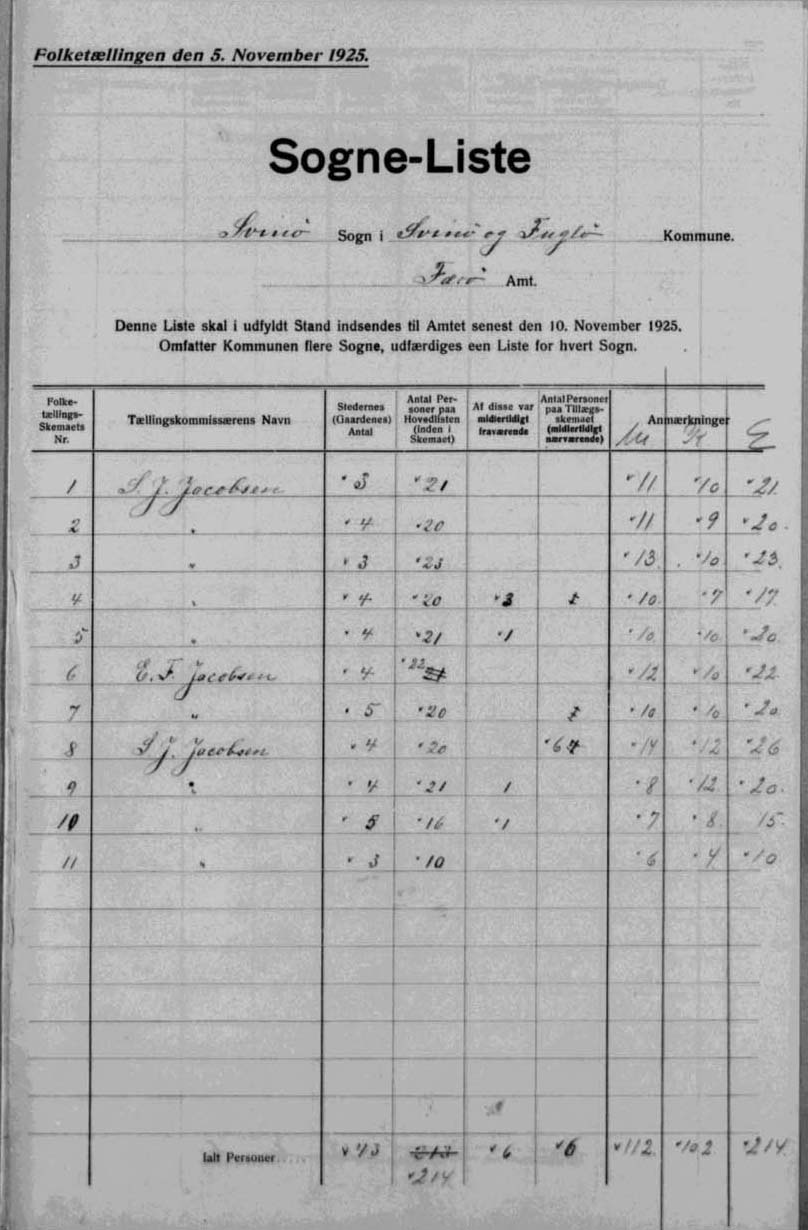 Folketællingen den 5. November 1925.
Sogne-Liste
Svinø Sogn i Svinø og Fuglø Kommune.
Færø Amt.
Denne Liste skal i udfyldt Stand indsendes til Amtet senest den 10. November 1925.
Omfatter Kommunen flere Sogne, udfærdiges een Liste for hvert Sogn.
Folke-tællings-Skemaets Nr. Tællingskommissærens Navn Stedernes (Gaardenes) Antal Antal Personer paa Hovedlisten (inden i Skemaet) Af disse var midlertidigt fraværende Antal Personer paa Tillægs-skemaet (midlertidigt nærværende) Anmærkninger
M K E
1 S. J. Jacobsen 3 21 11 10 21
2 " 4 20 11 9 20
3 " 3 23 13 10 23
4 " 4 20 3 10 7 17
5 " 4 21 1 10 10 20
6 E. F. Jacobsen 4 22 21 12 10 22
7 " 5 20 10 10 20
8 S. J. Jacobsen 4 20 6 14 12 26
9 " 4 21 1 8 12 20
10 " 5 16 1 7 8 15
11 " 3 10 6 4 10
Ialt Personer 43 213 6 6 112 102 214
214